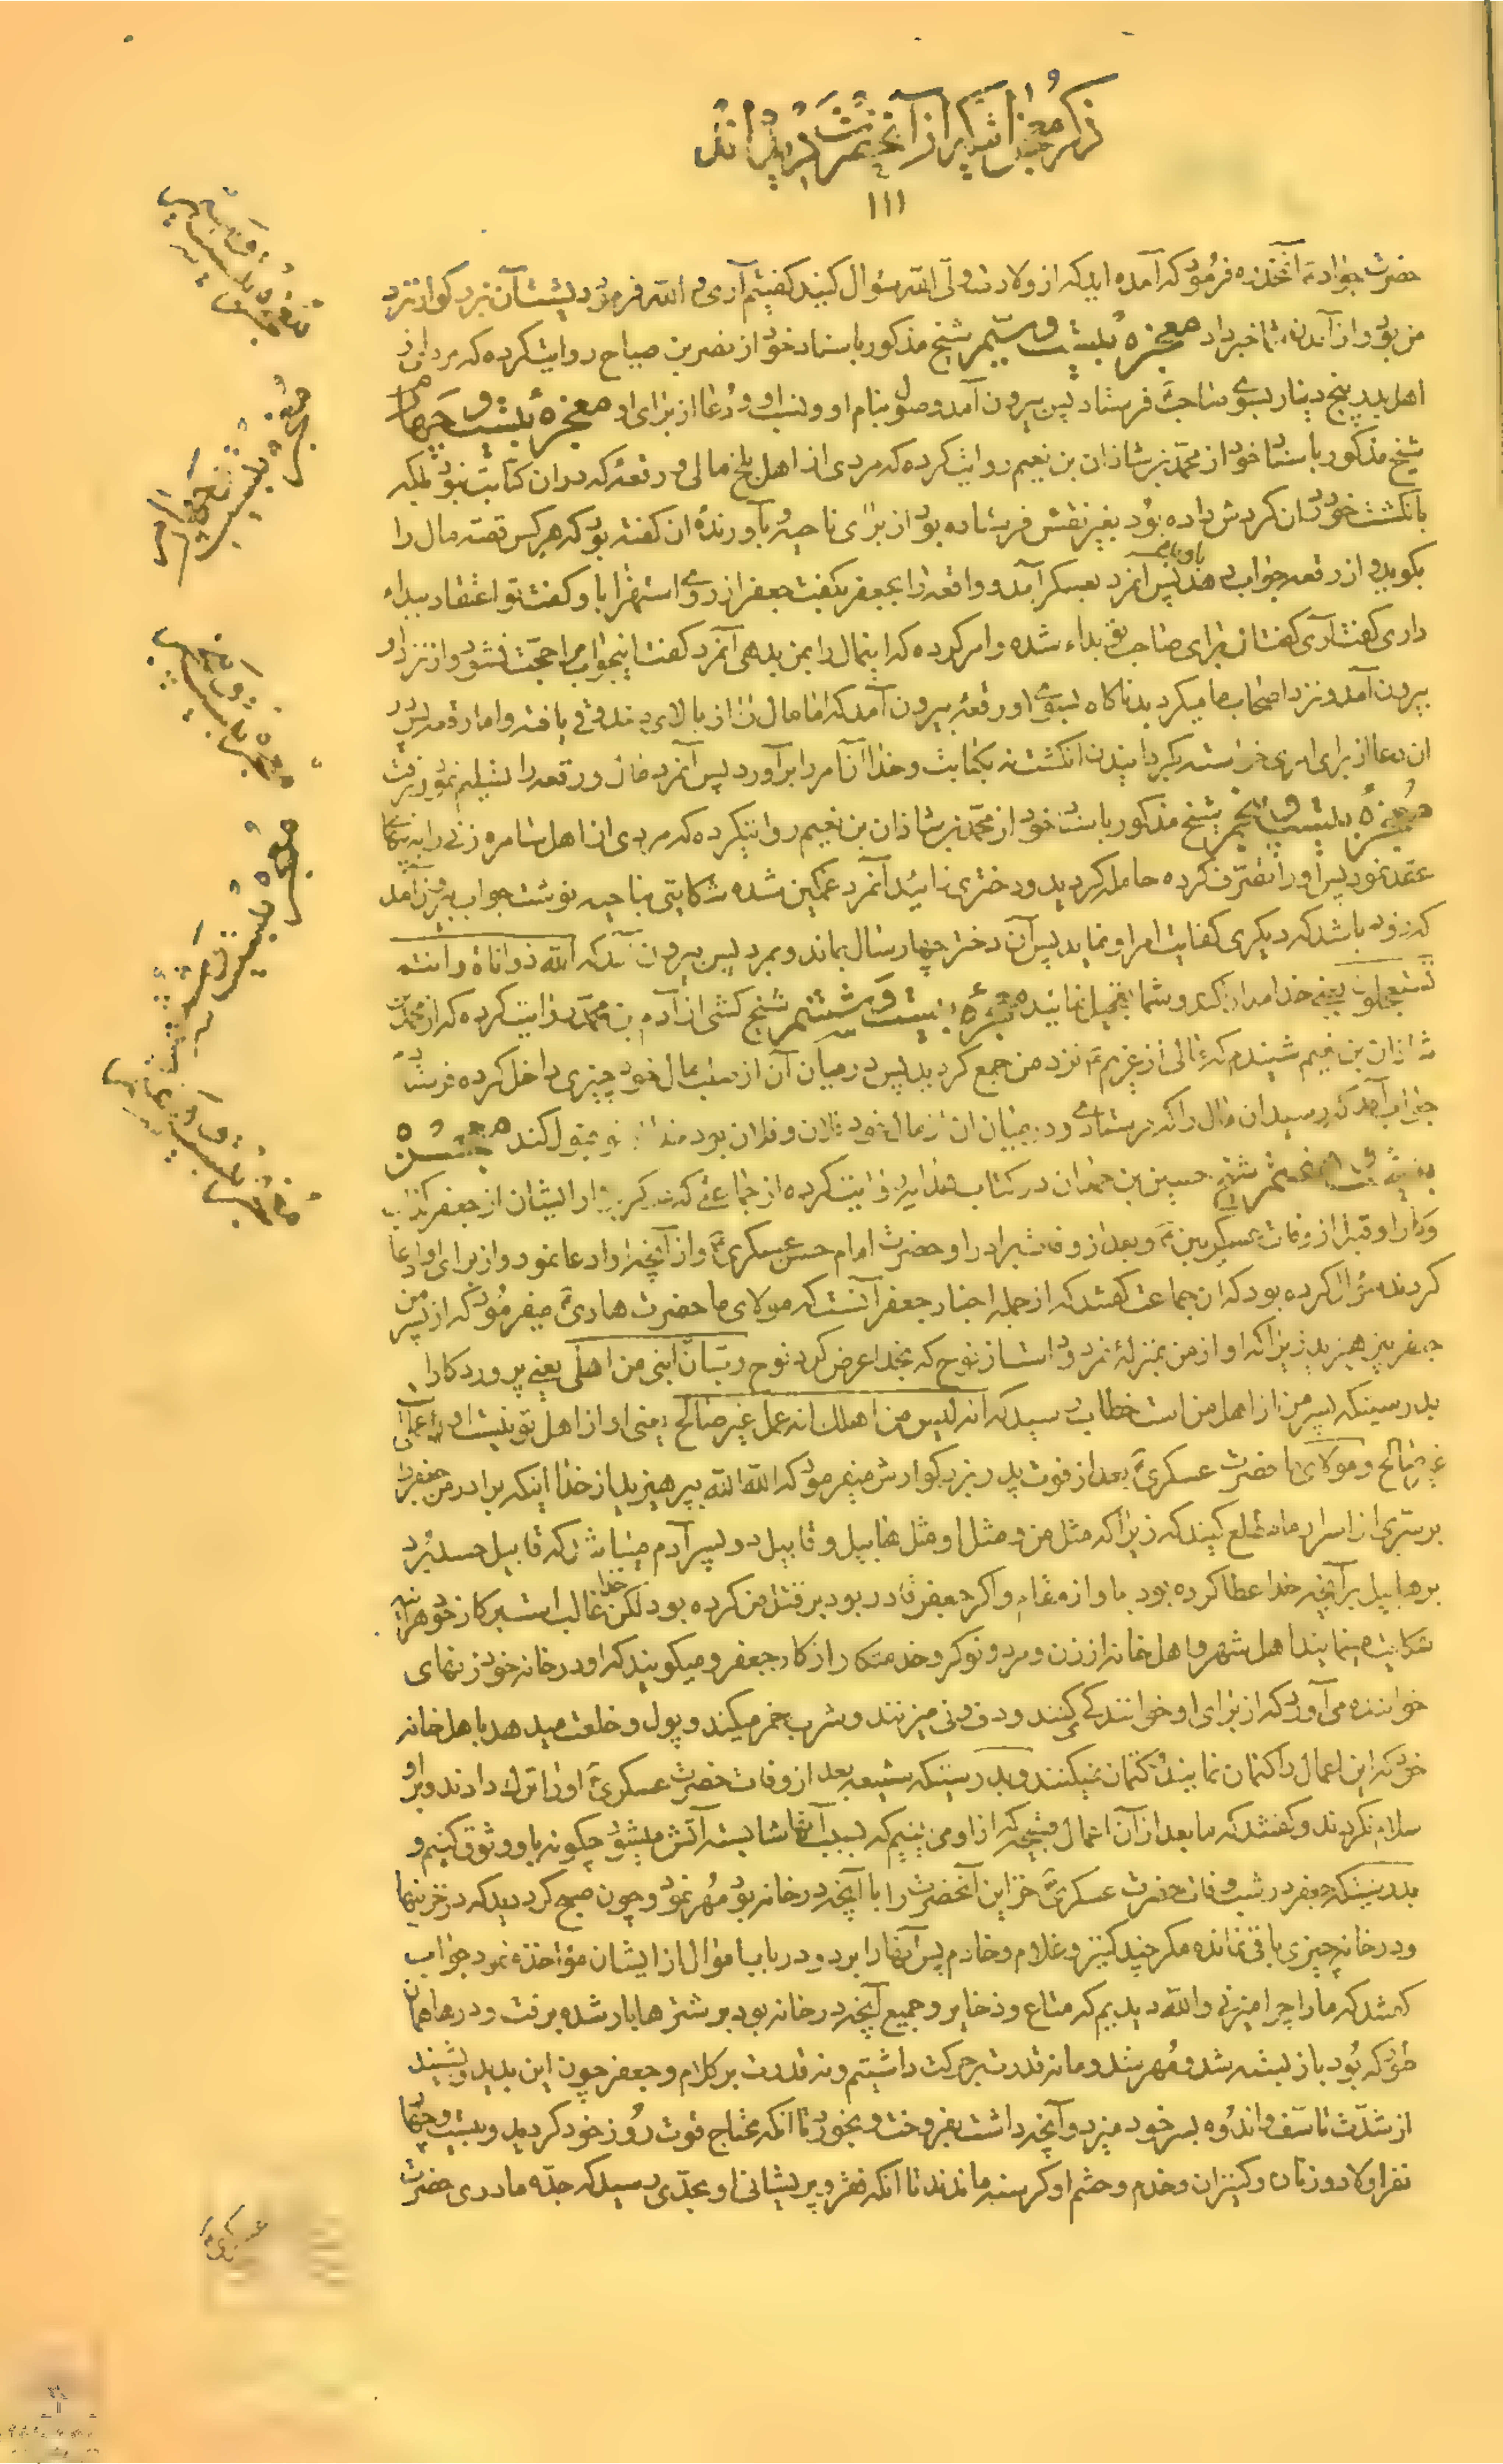 ذکر معجزاتیکه از آنحضرت دیده‌اند
۱۱۱
حضرت جواد آنخنده فرمود که آمده اید که از ولادت ولی الله سؤال کنید گفتیم آری والله فرمود بیشتر آن بزرگوار نزد
من بود و از آمدن شما خبر داد معجزه بیست و سیم شیخ مذکور باسناد خود از نصر بن صباح روایت کرده که مردی از
اهل بلخ پنج دینار بسوی صاحب فرستاد پس بیرون آمد وصول بنام او و نسب او و دعا از برای او معجزه بیست و چهارم
شیخ مذکور باسناد خود از محمد بن شاذان بن نعیم روایت کرده که مردی از اهل بلخ مالی و رقعه که در ان کتابت نبود بلکه
بانگشت خود در ان گردش داده بود بغیر نقش فرستاده بود از برای ناحیه و بآورنده ان گفته بود که هر کس قصه مال را
بگوید و از رقعه جواب دهد باو بده پس انمرد بعسکر آمد و واقعه را بجعفر بگفت جعفر از روی استهزا باو گفت تو اعتقاد ببداء
داری گفت آری گفت از برای صاحب تو بداء شده و امر کرده که اینمال را بمن بدهی آنمرد گفت اینجواب مرا حجت نشود و از نزد او
بیرون آمد و نزد اصحاب ما میگردید ناگاه بسوی او رقعه بیرون آمد که اما مال از بالای صندوق یافته و اما رقعه پس در
ان دعا از برای امری خواسته بگردانیدن انگشت نه بکتابت و خدا آن امر را برآورد پس آنمرد مال و رقعه را تسلیم نمود و برفت
معجزه بیست و پنجم شیخ مذکور باسناد خود از محمد بن شاذان بن نعیم روایت کرده که مردی از اهل سامره زنی را به پنهانی
عقد نمود پس او را تصرف کرده حامله گردید و دختری زائید آنمرد غمگین شده شکایتی بناحیه نوشت جواب بیرون آمد
که زود باشد که دیگری کفایت امر او نماید پس آن دختر چهار سال بماند و بمرد پس بیرون آمد که الله ذو اناة و انتم
تستعجلون یعنی خدا مدارا کند و شما تعجیل نمائید معجزه بیست و ششم شیخ کشی از آدم بن محمد روایت کرده که از محمد بن
شاذان بن نعیم شنیدم که مالی از غریم نزد من جمع گردید پس در میان آن از صلب مال خود چیزی داخل کرده فرستادم
جواب آمد که رسید ان مال را که فرستادی و در میان ان از مال خود فلان و فلان بود خدا از تو قبول کند معجزه
بیست و هفتم شیخ حسین بن حمدان در کتاب هدایه روایت کرده از جماعتی که ذکر کرده ایشان از جعفر کذاب
و کار او قبل از وفات عسکریین و بعد از وفات برادر او حضرت امام حسن عسکری و از آنچه او ادعا نمود و از برای او ادعا
کردند سؤال کرده بود که ان جماعت گفتند که از جمله اخبار جعفر آنست که مولای ما حضرت هادی میفرمود که از پسر من
جعفر بپرهیزید زیرا که او از من بمنزله نمرود است از نوح که بخدا عرض کرد نوح رب ان ابنی من اهلی یعنی پروردگارا
بدرستیکه پسر من از اهل من است خطاب رسید که انه لیس من اهلک انه عمل غیر صالح یعنی او از اهل تو نیست او را عملی
غیر صالح و مولای ما حضرت عسکری بعد از فوت پدر بزرگوارش میفرمود که الله الله بپرهیزید از خدا اینکه برادر من جعفر را
بر سری از اسرار ما مطلع کنید که زیرا که مثل من و مثل او مثل هابیل و قابیل دو پسر آدم میباشد که قابیل حسد برد
بر هابیل برآنچه خدا عطا کرده بود باو از مقام و اگر جعفر قادر بود بر قتل من کرده بود لکن خدا غالب است بر کار خود هر آینه
شکایت مینمایند اهل شهر و اهل خانه از زن و مرد و نوکر و خدمتکار از کار جعفر و میگویند که او در خانه خود زنهای
خواننده می آورد که از برای او خوانندگی کنند و دف و نی میزنند و شرب خمر میکند و پول و خلعت میدهد باهل خانه
خود که این اعمال را کتمان نمایند و کتمان نمیکنند و بدرستیکه شیعه بعد از وفات حضرت عسکری او را ترک دادند و بر او
سلام نکردند و گفتند که ما بعد از آن اعمال قبیحه که از او می بینیم که بسبب آنها شایسته آتش میشود چگونه باو وثوق کنیم و
بدرستیکه جعفر در شب وفات حضرت عسکری خزاین آنحضرت را با آنچه در خانه بود مهر نمود و چون صبح کرد دید که در خزینها
و در خانه چیزی باقی نمانده مگر چند کنیز و غلام و خادم پس آنها را برد و در باب اموال از ایشان مؤاخذه نمود جواب
گفتند که ما را چرا میزنی والله دیدیم که متاع و ذخایر و جمیع آنچه در خانه بود بر شترها بار شده برفت و درها همان
طور که بود باز بسته شد و مهر شد و ما نه قدرت بر حرکت داشتیم و نه قدرت بر کلام و جعفر چون این بدید و شنید
از شدت تاسف و اندوه بسر خود میزد و آنچه داشت بفروخت و بخورد تا انکه محتاج قوت روز خود گردید و بیست و چهار
نفر اولاد و زنان و کنیزان و خدم و حشم او گرسنه ماندند تا انکه فقر و پریشانی او بحدی رسید که جده مادری حضرت
معجزه بیست و سیم
معجزه بیست و چهارم
معجزه بیست و پنجم
معجزه بیست و ششم
معجزه بیست و هفتم
عسکری